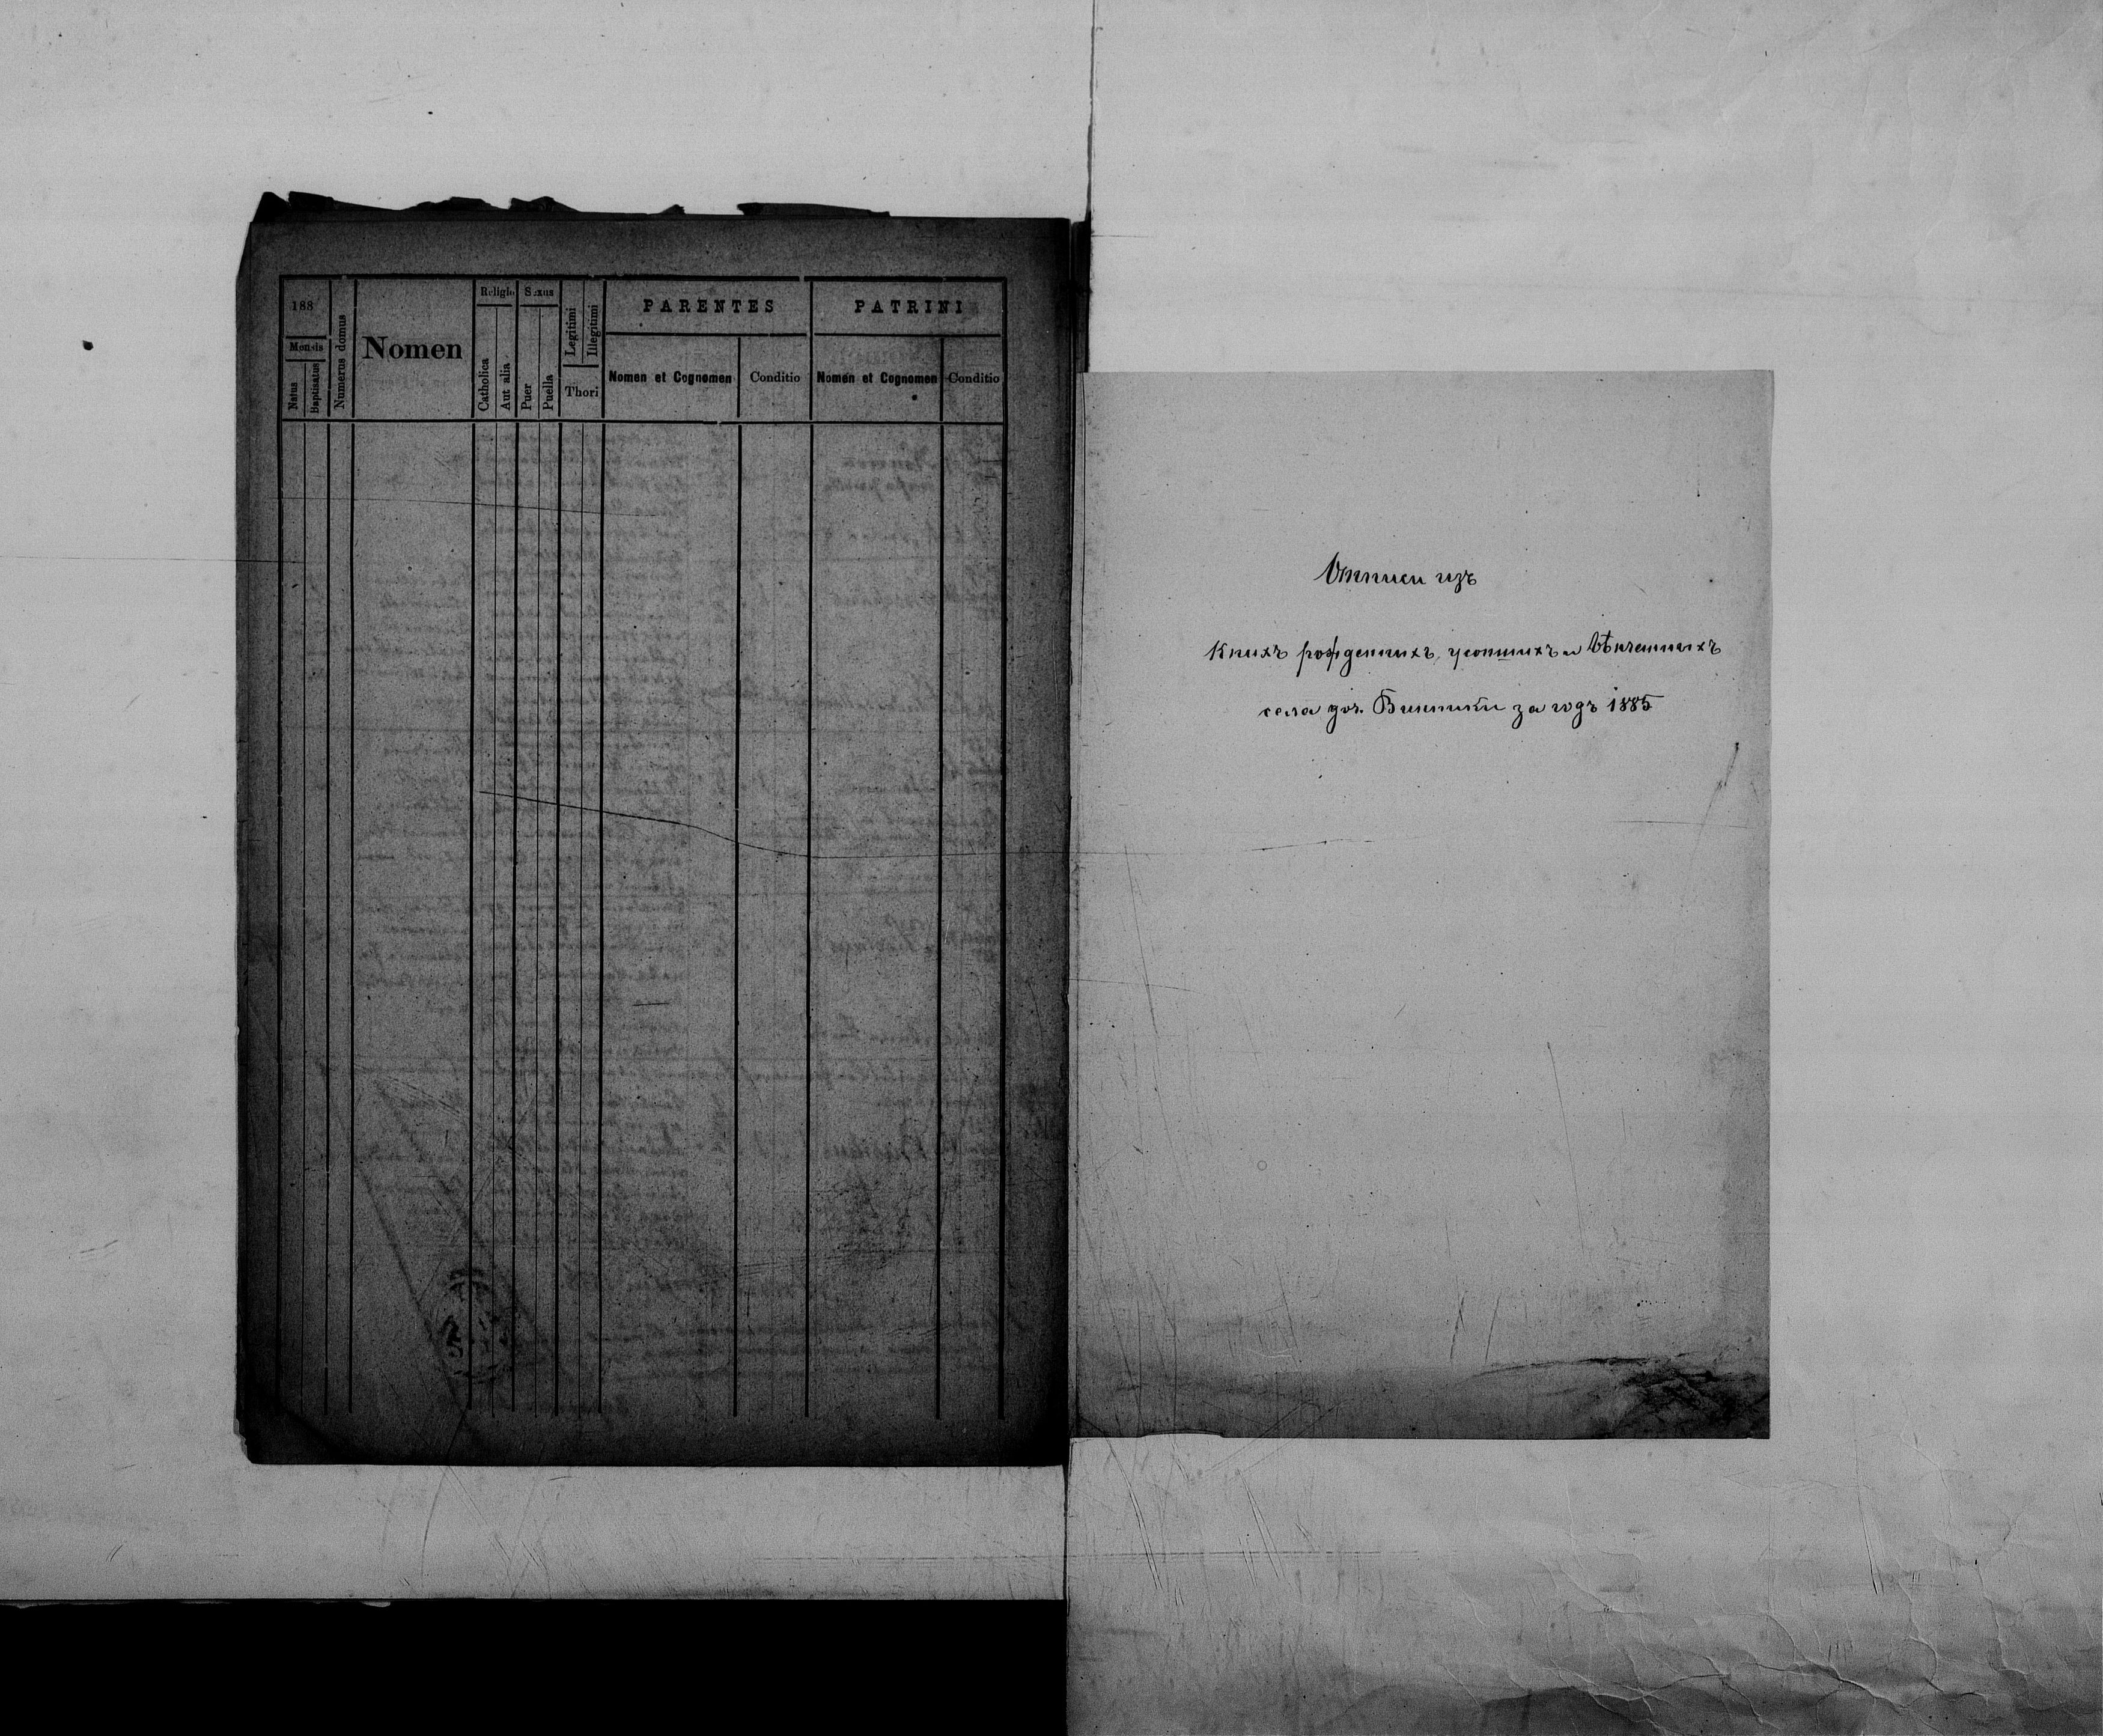 188
Religio
Sexus
PARENTES
PATRINI
Mensis
Natus
Baptisatus
Numerus domus
Nomen
Catholica
Aut alia
Puer
Puella
Legitimi
Illegitimi
Thori
Nomen et Cognomen
Conditio
Nomen et Cognomen
Conditio
Отписи изъ
Книхъ рожденныхъ, усопшихъ и вѣнчанныхъ
села за годъ 1885